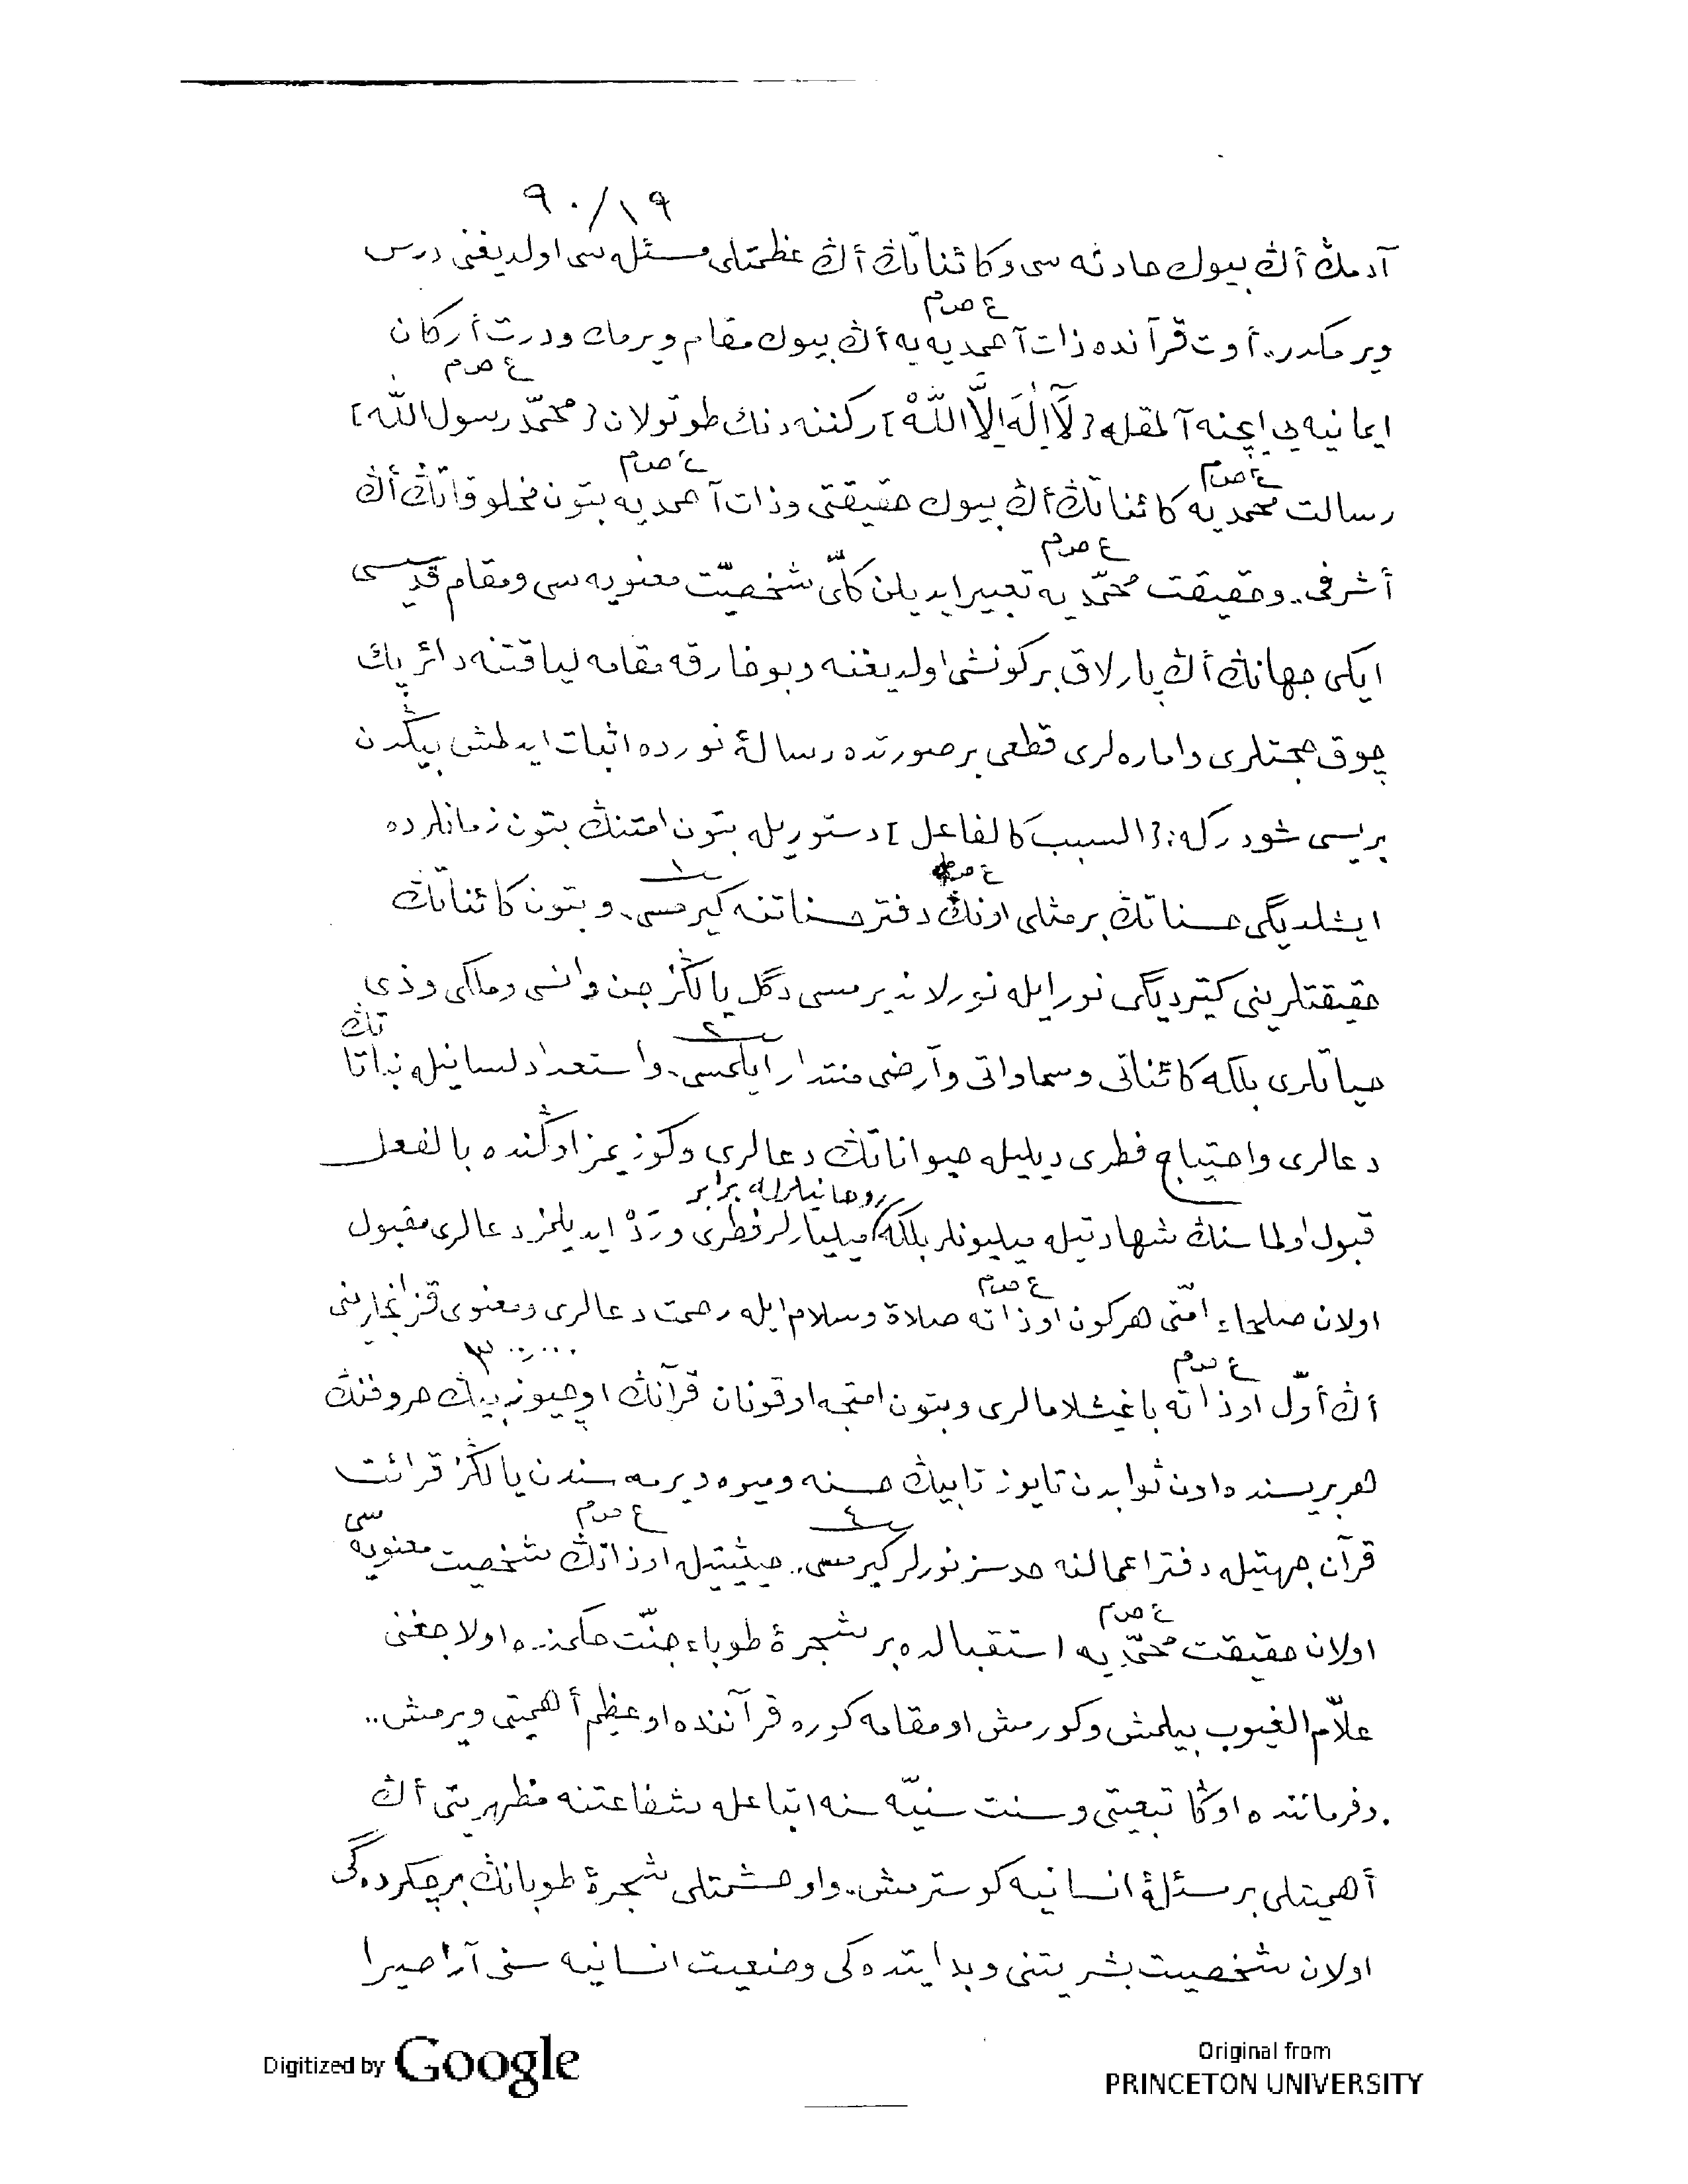 ٩٠/١٩
آدمڭ أڭ بيوك حادثه سى و كائناتڭ أڭ عظمتلى مسئله سى اولديغنى درس
ويرمكدر.. أوت قرآنده ذات آحمديه يه أڭ بيوك مقام ويرمك و درت أركان
ع ص م
ايمانيه يى ايچنه آلمقله [لَآ اِلٰهَ اِلَّا اللّٰهْ] ركننه دنك طوتولان [محمّد رسول اللّه]
ع ص م
رسالت محمديه كائناتڭ أڭ بيوك حقيقتى و ذات آحمديه بتون مخلوقاتڭ أڭ
ع ص م
ع ص م
أشرفى.. و حقيقت محمّديه تعبير ايديلن كلّى شخصيّت معنويه سى و مقام قدسيسى
ع ص م
ايكى جهانڭ أڭ پارلاق بر كونشى اولديغنه و بو خارقه مقامه لياقتنه دائر پك
چوق حجتلرى و اماره لرى قطعى بر صورتده رسالۀ نورده اثبات ايدلمش بيڭدن
بريسى شودركه: [السبب كالفاعل] دستوريله بتون امتنڭ بتون زمانلرده
ايشلديگى حسناتڭ بر مثلى اونڭ دفتر حسناتنه كيرمسى. و بتون كائناتڭ
ع ص م
١
حقيقتلرينى كيترديگى نور ايله نورلانديرمسى دگل يالڭز جن و انسى و ملكى و ذى
حياتلرى بلكه كائناتى و سماواتى و آرضى منتدار ايلمسى. و استعداد لسانيله نباتاتڭ
٢
دعالرى و احتياج فطرى ديليله حيواناتڭ دعالرى و كوزيمز اوڭنده بالفعل
قبول اولماسنڭ شهادتيله ميليونلر بلكه روحانيلرله برابر ميليارلر فطرى و ردّ ايديلمز دعالرى مقبول
اولان صلحاء امّتى هركون او ذاته صلاة و سلام ايله رحمت دعالرى و معنوى قزانجلرينى
ع ص م
أڭ أوّل او ذاته باغيشلامالرى و بتون امتجه اوقونان قرآنڭ اوچيوز بيڭ حروفنڭ
ع ص م
٣٠٠٠٠٠
هر بريسنده اون ثوابدن تا يوز تا بيڭ حسنه و ميوه ويرمه سندن يالڭز قرائت
قرآن جهتيله دفتر اعمالنه حدسز نورلر كيرمسى.. حيثيتيله او ذاتڭ شخصيت معنويه سى
٤
ع ص م
اولان حقيقت محمّديه استقبالده بر شجرۀ طوباء جنّت حكمنده اولاجغنى
ع ص م
علاّم الغيوب بيلمش و كورمش او مقامه كوره قرآننده او عظيم أهميتى ويرمش..
.و فرماننده اوڭا تبعيتى و سنت سنيّه سنه اتباعله شفاعتنه مظهريتى أڭ
أهميتلى بر مسئلۀ انسانيه كوسترمش.. و او حشمتلى شجرۀ طوبانڭ بر چكردگى
اولان شخصيت بشريتنى و بدايتده كى وضعيت انسانيه سنى آرا صيرا
Digitized by Google
Original from
PRINCETON UNIVERSITY